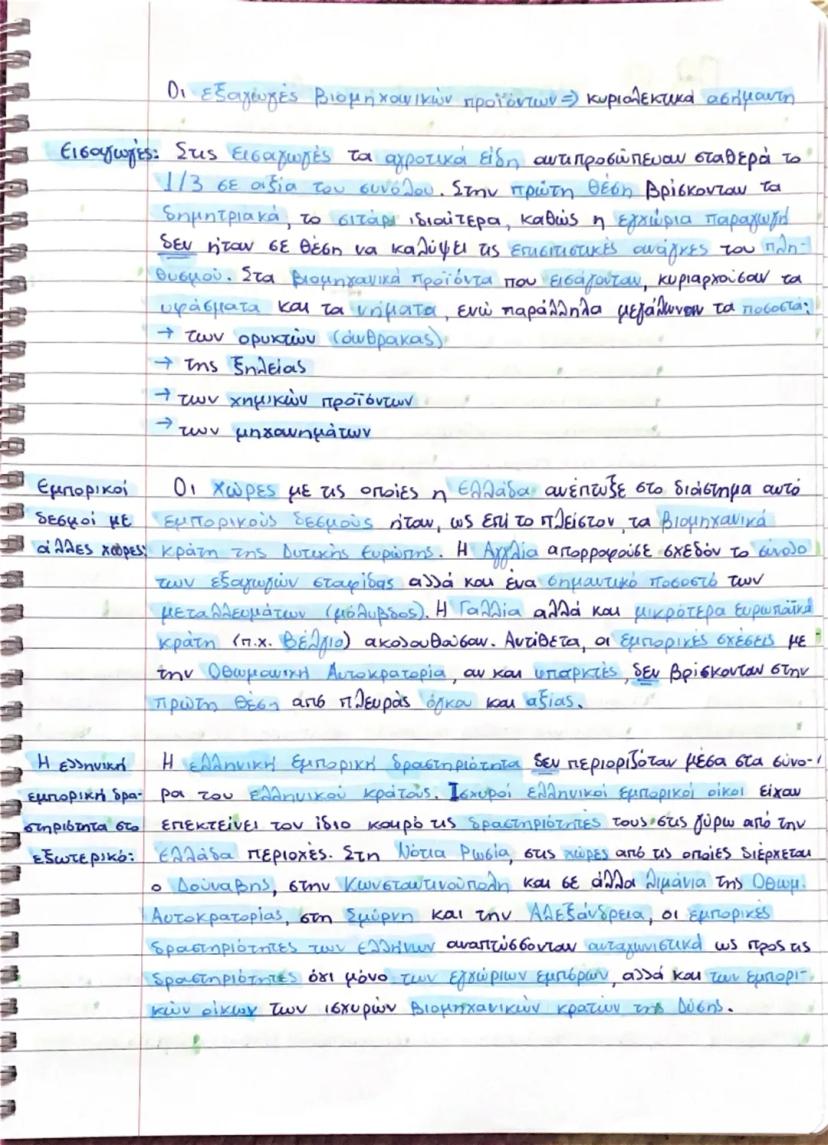 Οι εξαγωγές βιομηχανικών προϊόντων => κυριολεκτικά ασήμαντη
Εισαγωγές: Στις εισαγωγές τα αγροτικά είδη αντιπροσώπευαν σταθερά το
1/3 σε αξία του συνόλου. Στην πρώτη θέση βρίσκονταν τα
δημητριακά, το σιτάρι ιδιαίτερα, καθώς η εγχώρια παραγωγή
δεν ήταν σε θέση να καλύψει τις επισιτιστικές ανάγκες του πλη-
θυσμού. Στα βιομηχανικά προϊόντα που εισάγονταν, κυριαρχούσαν τα
υφάσματα και τα νήματα, ενώ παράλληλα μεγάλωναν τα ποσοστά:
→ των ορυκτών (άνθρακας)
→ της ξηλείας
→ των χημικών προϊόντων
→ των μηχανημάτων
Εμπορικοί Οι χώρες με τις οποίες η Ελλάδα ανέπτυξε στο διάστημα αυτό
δεσμοί με εμπορικούς δεσμούς ήταν, ως επί το πλείστον, τα βιομηχανικά
άλλες χώρες: κράτη της Δυτικής Ευρώπης. Η Αγγλία απορροφούσε σχεδόν το σύνολο
των εξαγωγών σταφίδας αλλά και ένα σημαντικό ποσοστό των
μεταλλευμάτων (μόλυβδος). Η Γαλλία αλλά και μικρότερα ευρωπαϊκά
κράτη (π.χ. Βέλγιο) ακολουθούσαν. Αντίθετα, οι εμπορικές σχέσεις με
την Οθωμανική Αυτοκρατορία, αν και υπαρκτές, δεν βρίσκονταν στην
πρώτη θέση από πλευράς όγκου και αξίας.
Η ελληνική Η ελληνική εμπορική δραστηριότητα δεν περιοριζόταν μέσα στα σύνο-
εμπορική δρα- ρα του ελληνικού κράτους. Ισχυροί ελληνικοί εμπορικοί οίκοι είχαν
στηριότητα στο επεκτείνει τον ίδιο καιρό τις δραστηριότητές τους στις γύρω από την
εξωτερικό: Ελλάδα περιοχές. Στη Νότια Ρωσία, στις χώρες από τις οποίες διέρχεται
ο Δούναβης, στην Κωνσταντινούπολη και σε άλλα λιμάνια της Οθωμ.
Αυτοκρατορίας, στη Σμύρνη και την Αλεξάνδρεια, οι εμπορικές
δραστηριότητες των ελλήνων αναπτύσσονταν ανταγωνιστικά ως προς τις
δραστηριότητες όχι μόνο των εγχώριων εμπόρων, αλλά και των εμπορι-
κών οίκων των ισχυρών βιομηχανικών κρατών της Δύσης.